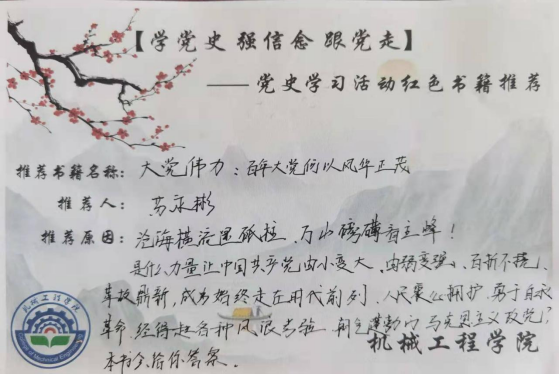 【学党史 强信念 跟党走】
——党史学习活动红色书籍推荐
推荐书籍名称：大党伟力：百年大党何以风华正茂
推荐人：苏永彬
推荐原因：沧海横流显砥柱，万山磅礴看主峰！
是什么力量让中国共产党由小变大、由弱变强、百折不挠、
革故鼎新，成为始终走在时代前列、人民衷心拥护、勇于自我
革命、经得起各种风浪考验、朝气蓬勃的马克思主义政党？
本书会给你答案。
机械工程学院
机械工程学院